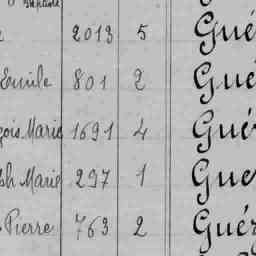 2013 5 Gué
Emile 801 2 Gué
çois Marie 1691 4 Gué
ph Marie 297 1 Gue
Pierre 763 2 Gué